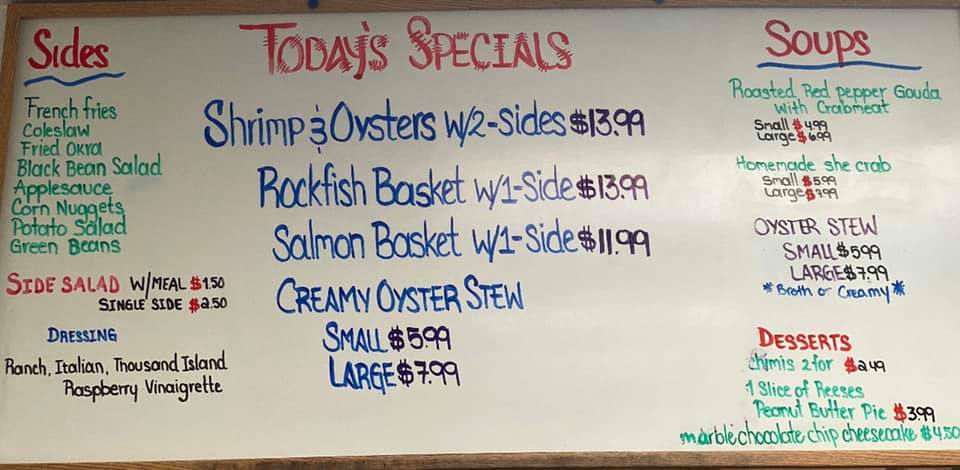 Sides
French fries
Coleslaw
Fried Okra
Black Bean Salad
Applesauce
Corn Nuggets
Potato Salad
Green Beans
SIDE SALAD W/MEAL $1.50
SINGLE SIDE $2.50
DRESSING
Ranch, Italian, Thousand Island
Raspberry Vinaigrette
TODAY'S SPECIALS
Shrimp & Oysters w/2-Sides $13.99
Rockfish Basket w/1-Side $13.99
Salmon Basket w/1-Side $11.99
CREAMY OYSTER STEW
SMALL $5.99
LARGE $7.99
SOUPS
Roasted Red pepper Gouda
with Crabmeat
Small $4.99
Large $6.99
Homemade she crab
Small $5.99
Large $7.99
OYSTER STEW
SMALL $5.99
LARGE $7.99
*Broth or Creamy*
DESSERTS
Chimis 2 for $2.49
1 Slice of Reeses
Peanut Butter Pie $3.99
marble chocolate chip cheesecake $4.50